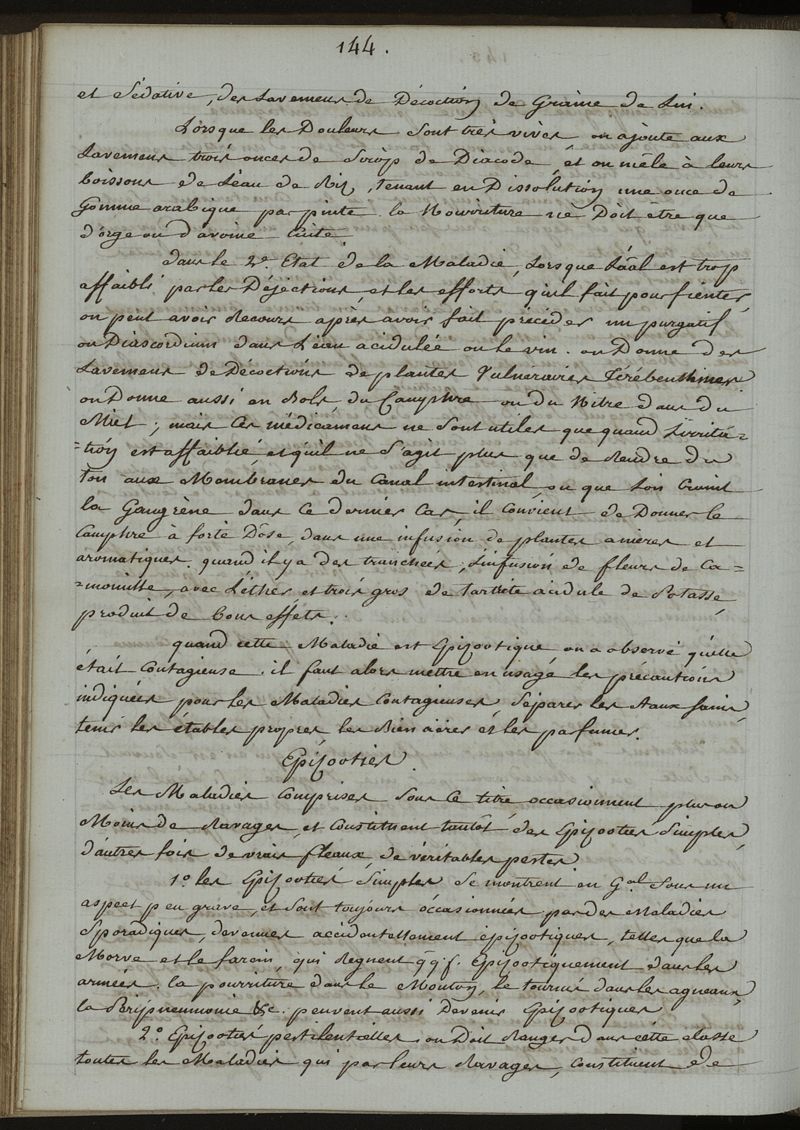 144.
et Sédative, des Lavemens de Décoction de Graine de Lin.
Lorsque les Douleurs sont très vives on ajoute aux
Lavemens trois onces de Sirop de Diacode, et on mêle à leurs
boissons de L'éau de Riz, tenant en Dissolution une once de
Gomme arabique par pinte. la Nourriture ne Doit être que
d'orge ou d'avoine Cuite.
dans le 2e. Etat de la Maladie, Lorsque L'aâl est trop
affaibli par les Déjections, et les efforts qu'il fait pour fienter,
on peut avoir Recours après avoir fait précéder un purgatif
au Diascordium dans L'éau acidulée ou le vin. on Donne des
Lavemens de Décoctions de plantes Vulnéraires Térébenthinés
on Donne aussi en Bols du Camphre ou du Nitre dans du
Miel; mais Ces médicamens ne Sont utiles que quand L'irrita=
=tion est affaiblie, et qu'il ne S'agit plus que de Rendre du
ton aux Membranes du Canal intestinal, ou que L'on Craint
la Gangrène dans Ce dernier Cas, il Convient de Donner le
Camphre à forte Dose, dans une infusion de plantes amères et
aromatiques. quand il y a des tranchées, L'infusion de fleurs de Ca=
=momille, avec L'éther, et trois gros de tartrite acidule de Potasse,
produit de bons effets.
quand cette Maladie est Epizootique on a observé qu'elle
était Contagieuse. il faut alors mettre en usage les précautions
indiquées pour les Maladies Contagieuses, Séparer les Aaux Sains,
tenir les étables propres, les Bien aérer et les parfumer.
Epizooties.
Les Maladies Comprises Sous Ce titre, occasionnent plus ou
Moins de Ravages, et Constituent tantôt des Epizooties Simples,
d'autres fois de vrais fléaux, de véritables pestes
1o. les Epizooties Simples se montrent en Gal. Sous un
aspect peu grave, et Sont toujours occasionnées par des Maladies
Sporadiques, devenues accidentellement épizootiques, telles que la
Morve et le farcin, qui Regnent qq. f. Epizootiquement dans les
armées. la pourriture dans le Mouton, le tournis dans les agneaux,
la Péripneumonie &c. peuvent aussi Devenir Epizootiques
2o. Epizooties pestilentielles. on Doit Ranger dans cette classe
toutes les Maladies qui par leurs Ravages, Constituent de